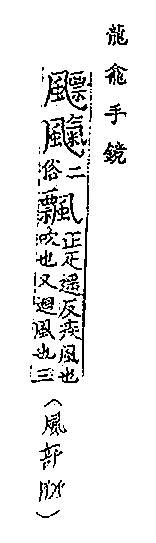 龍龕手鏡
飃二俗飄正疋遥反疾風也吹也又迴風也三
(風部)